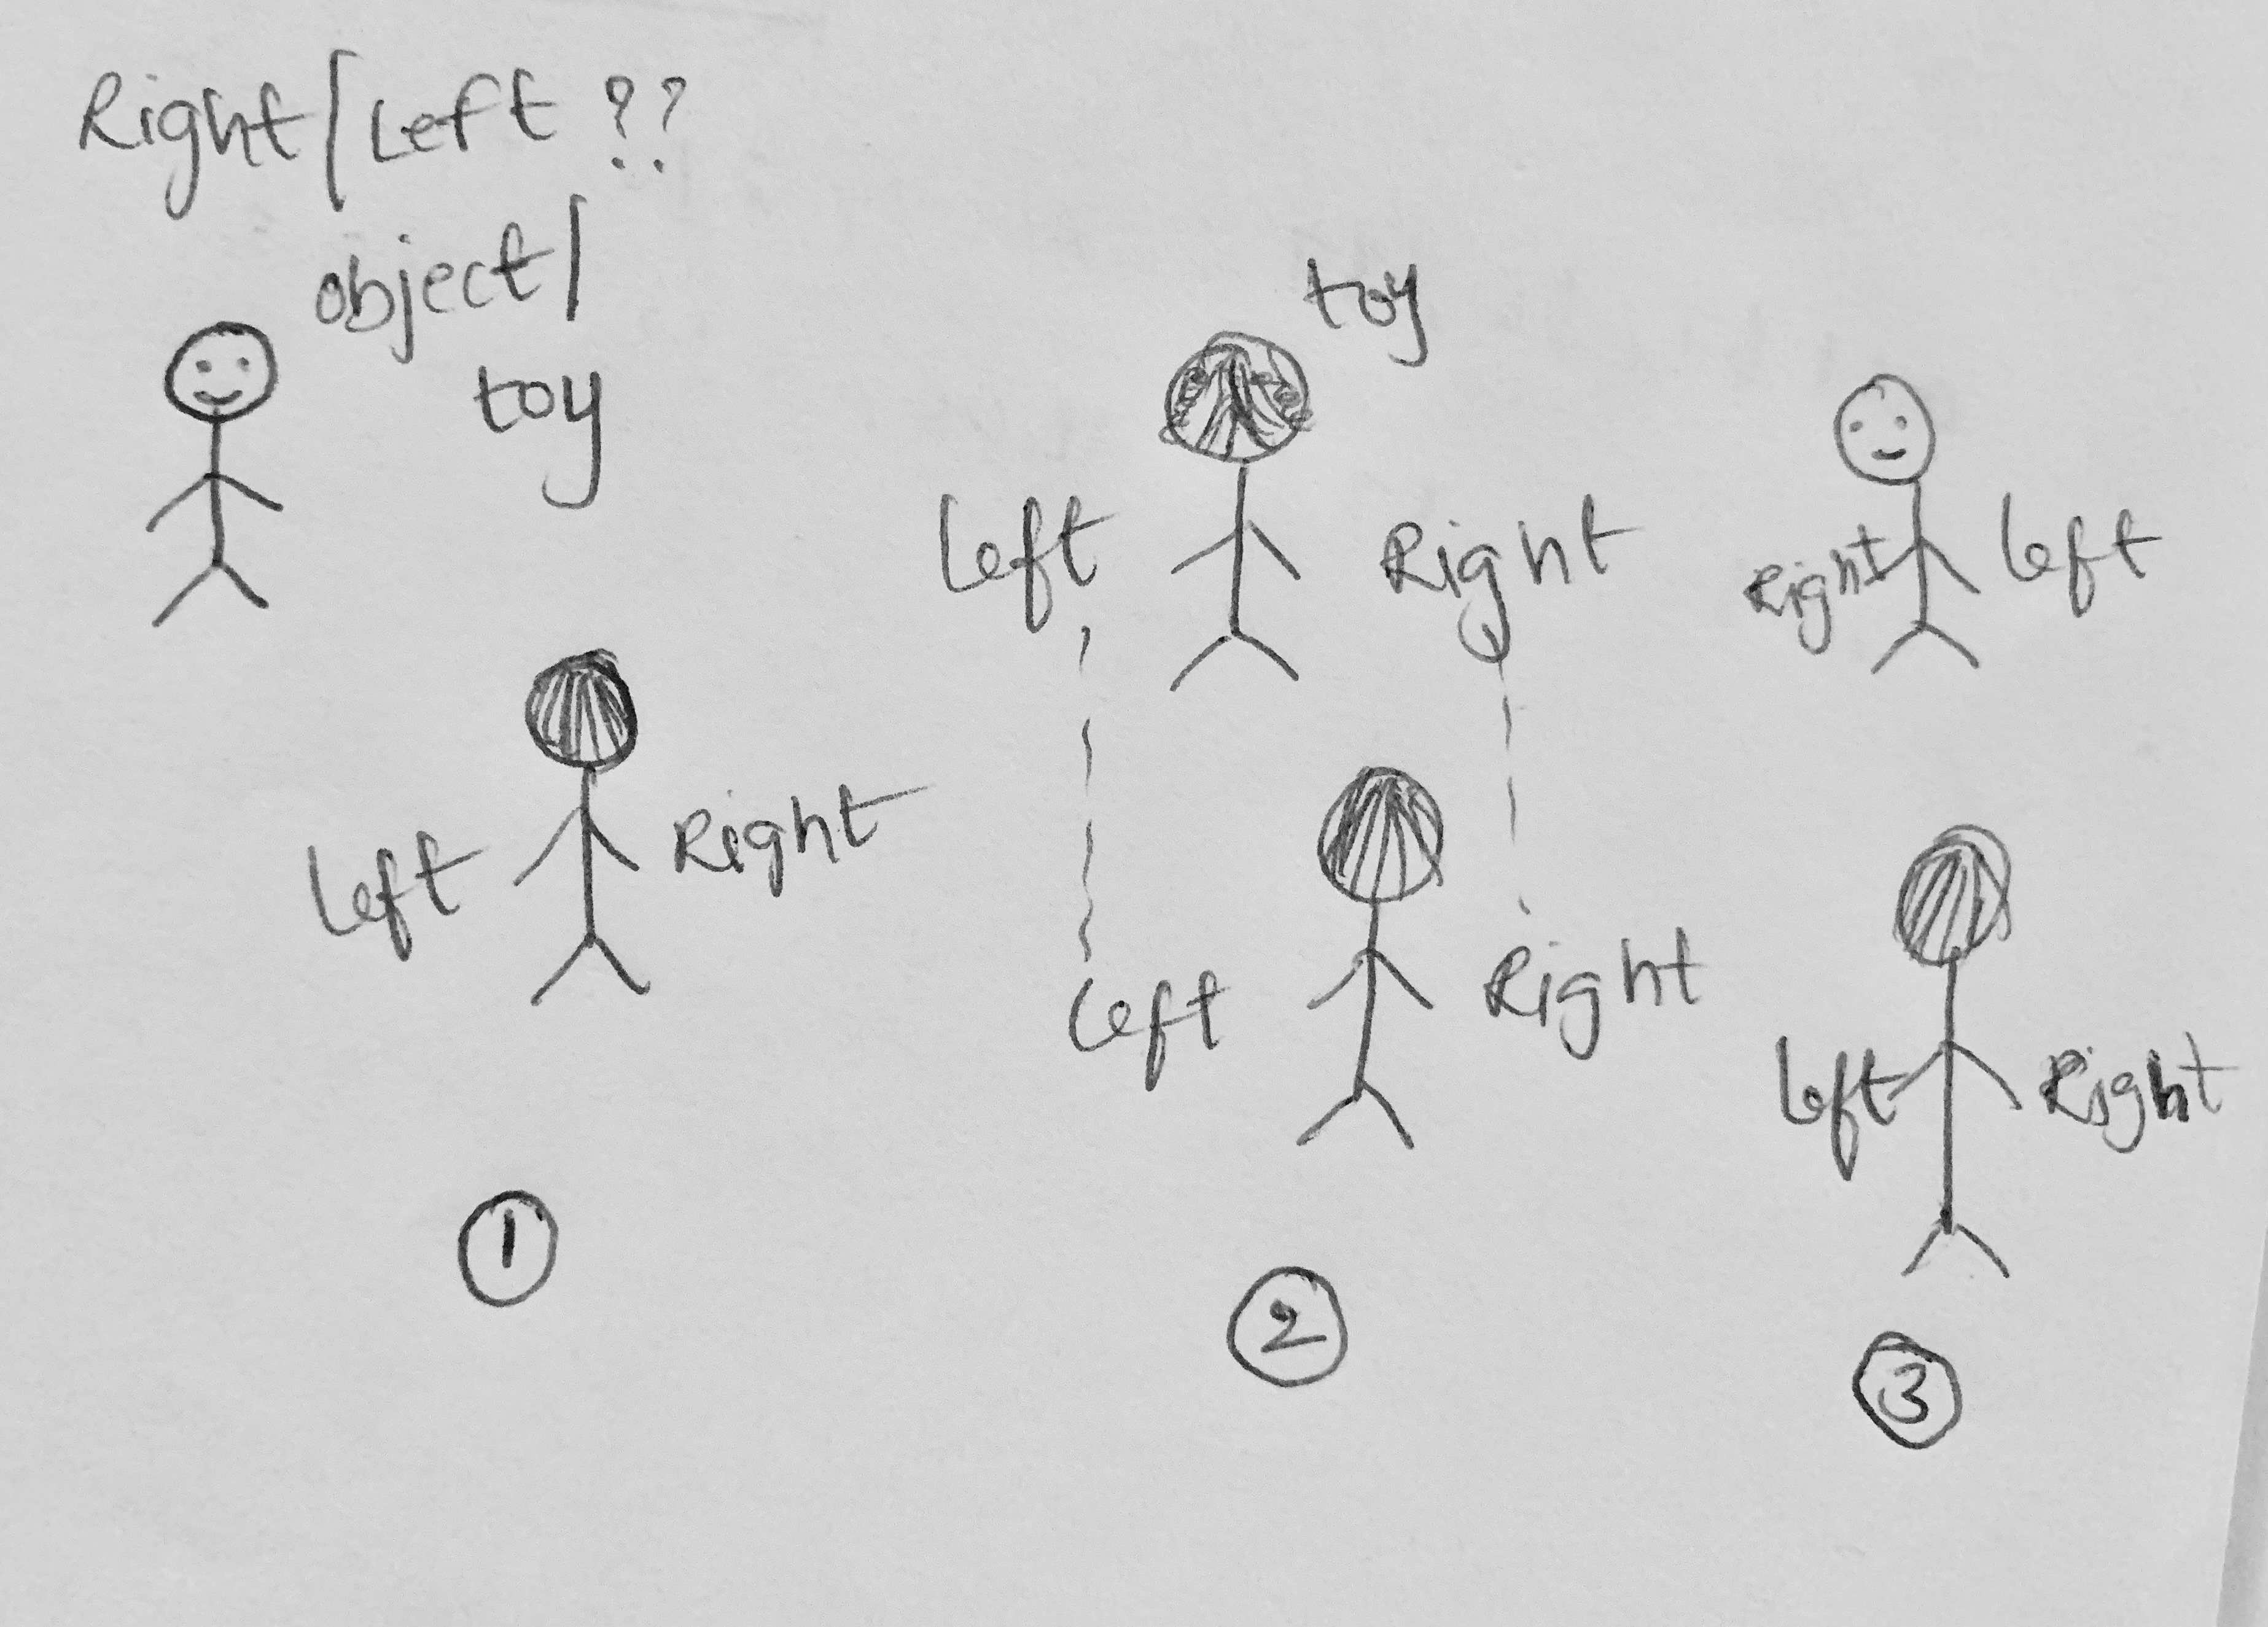 Right/Left ??
object/
toy
Left Right
1
toy
Left Right
Left Right
2
Right Left
Left Right
3